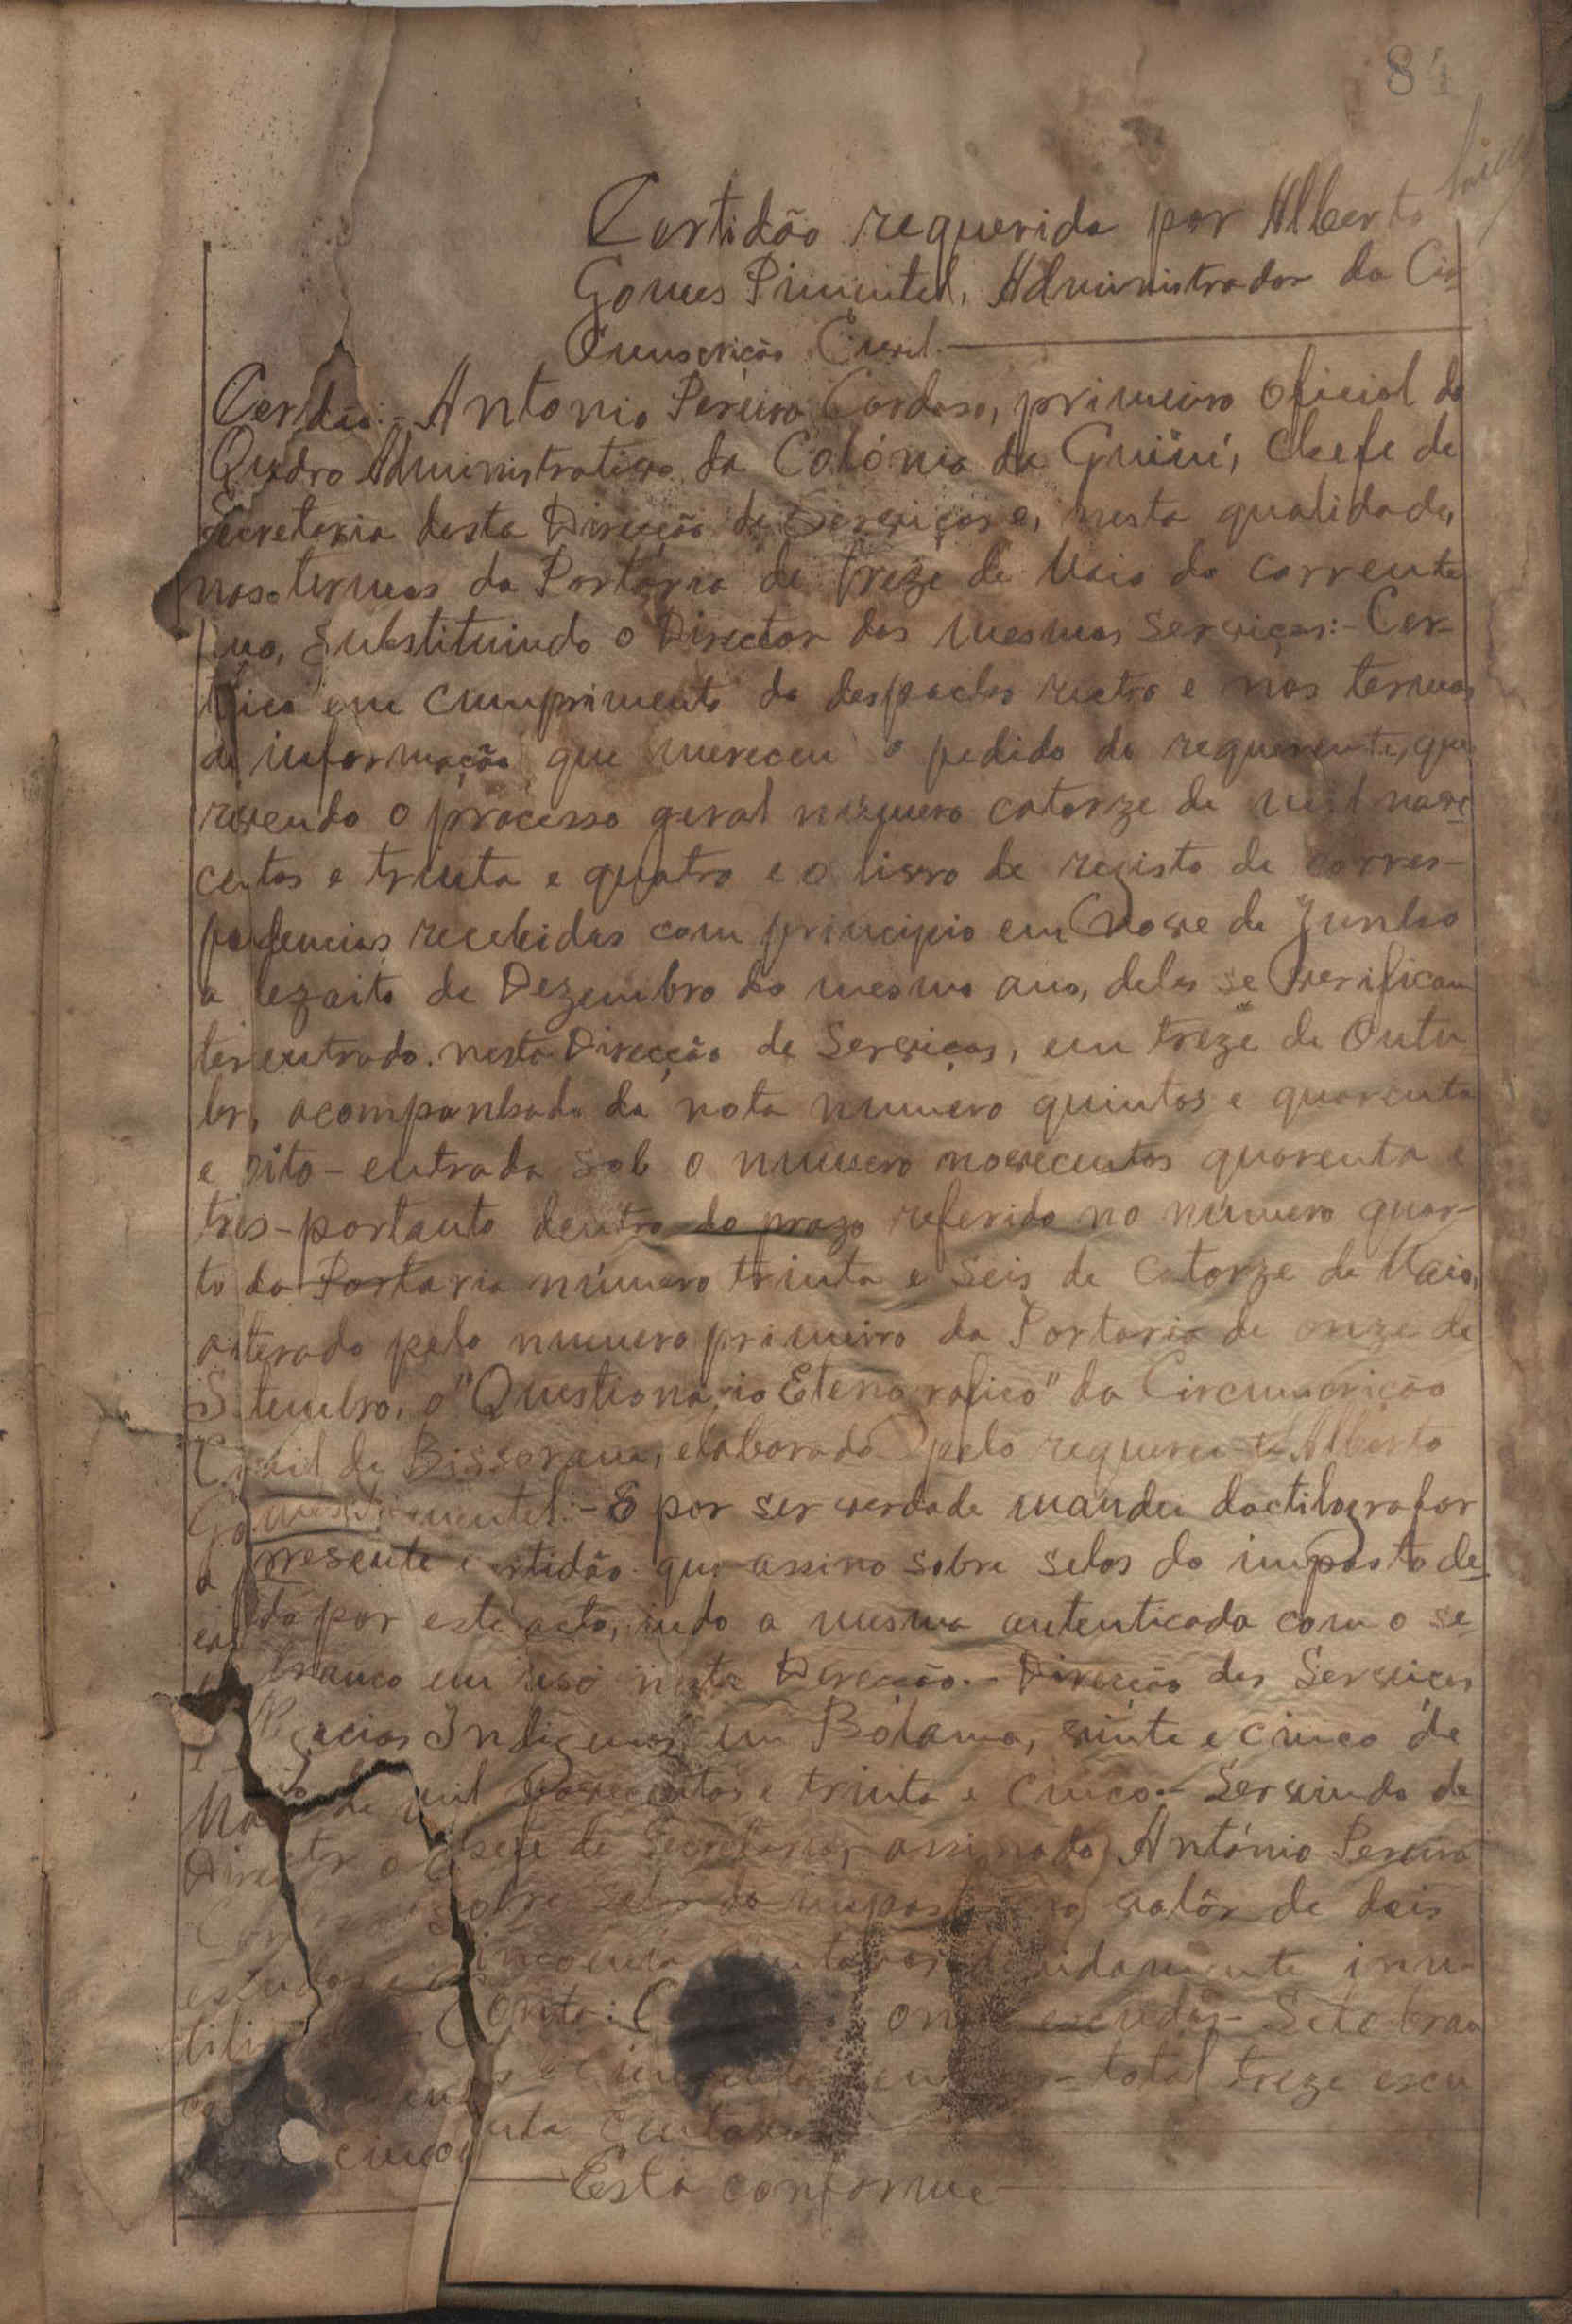 84
Certidão requerida por Alberto
Gomes Pimentel, Administrador da Cir-
cunscrição Civil.
Certidão:- Antonio Pereira Cardoso, primeiro oficial do
Quadro Administrativo da Colónia da Guiné, Chefe de
Secretaria desta Direcção de Serviços e, nesta qualidade,
nos termos da Portaria de treze de Maio do corrente
ano, substituindo o Director dos mesmos serviços:- Cer-
tifico em cumprimento do despacho retro e nos termos
da informação que mereceu o pedido do requerente, que
revendo o processo geral número catorze de mil nove
centos e trinta e quatro e o livro de registo de corres-
pondencias recebidas com principio em nove de Junho
a dezoito de Dezembro do mesmo ano, deles se verificam
ter entrado nesta Direcção de Serviços, em treze de Outu
bro, acompanhado da nota numero quintos e quarenta
e oito - entrada sob o numero novecentos quarenta e
três - portanto dentro do prazo referido no número quar-
to da Portaria número trinta e seis de catorze de Maio,
alterado pelo numero primeiro da Portaria de onze de
Setembro, o "Questionario Etenografico" da Circunscrição
Civil de Bissoram, elaborado pelo requerente Alberto
Gomes Pimentel.- E por ser verdade mandei dactilografar
a presente certidão que assino sobre selos do imposto de
do por este acto, indo a mesma autenticada com o se
branco em uso nesta Direcção.- Direcção dos Serviços
e Negocios Indigenas em Bolama, vinte e cinco de
Maio de mil novecentos e trinta e cinco.- Servindo de
Director o Chefe de Secretaria, assinado) António Pereira
sobre selos do imposto no valôr de dois
escudos e cincoenta centavos devidamente inu-
tili Conta: onze escudos - Selo bran
cincoenta total treze escu
cincoenta centavos
Está conforme